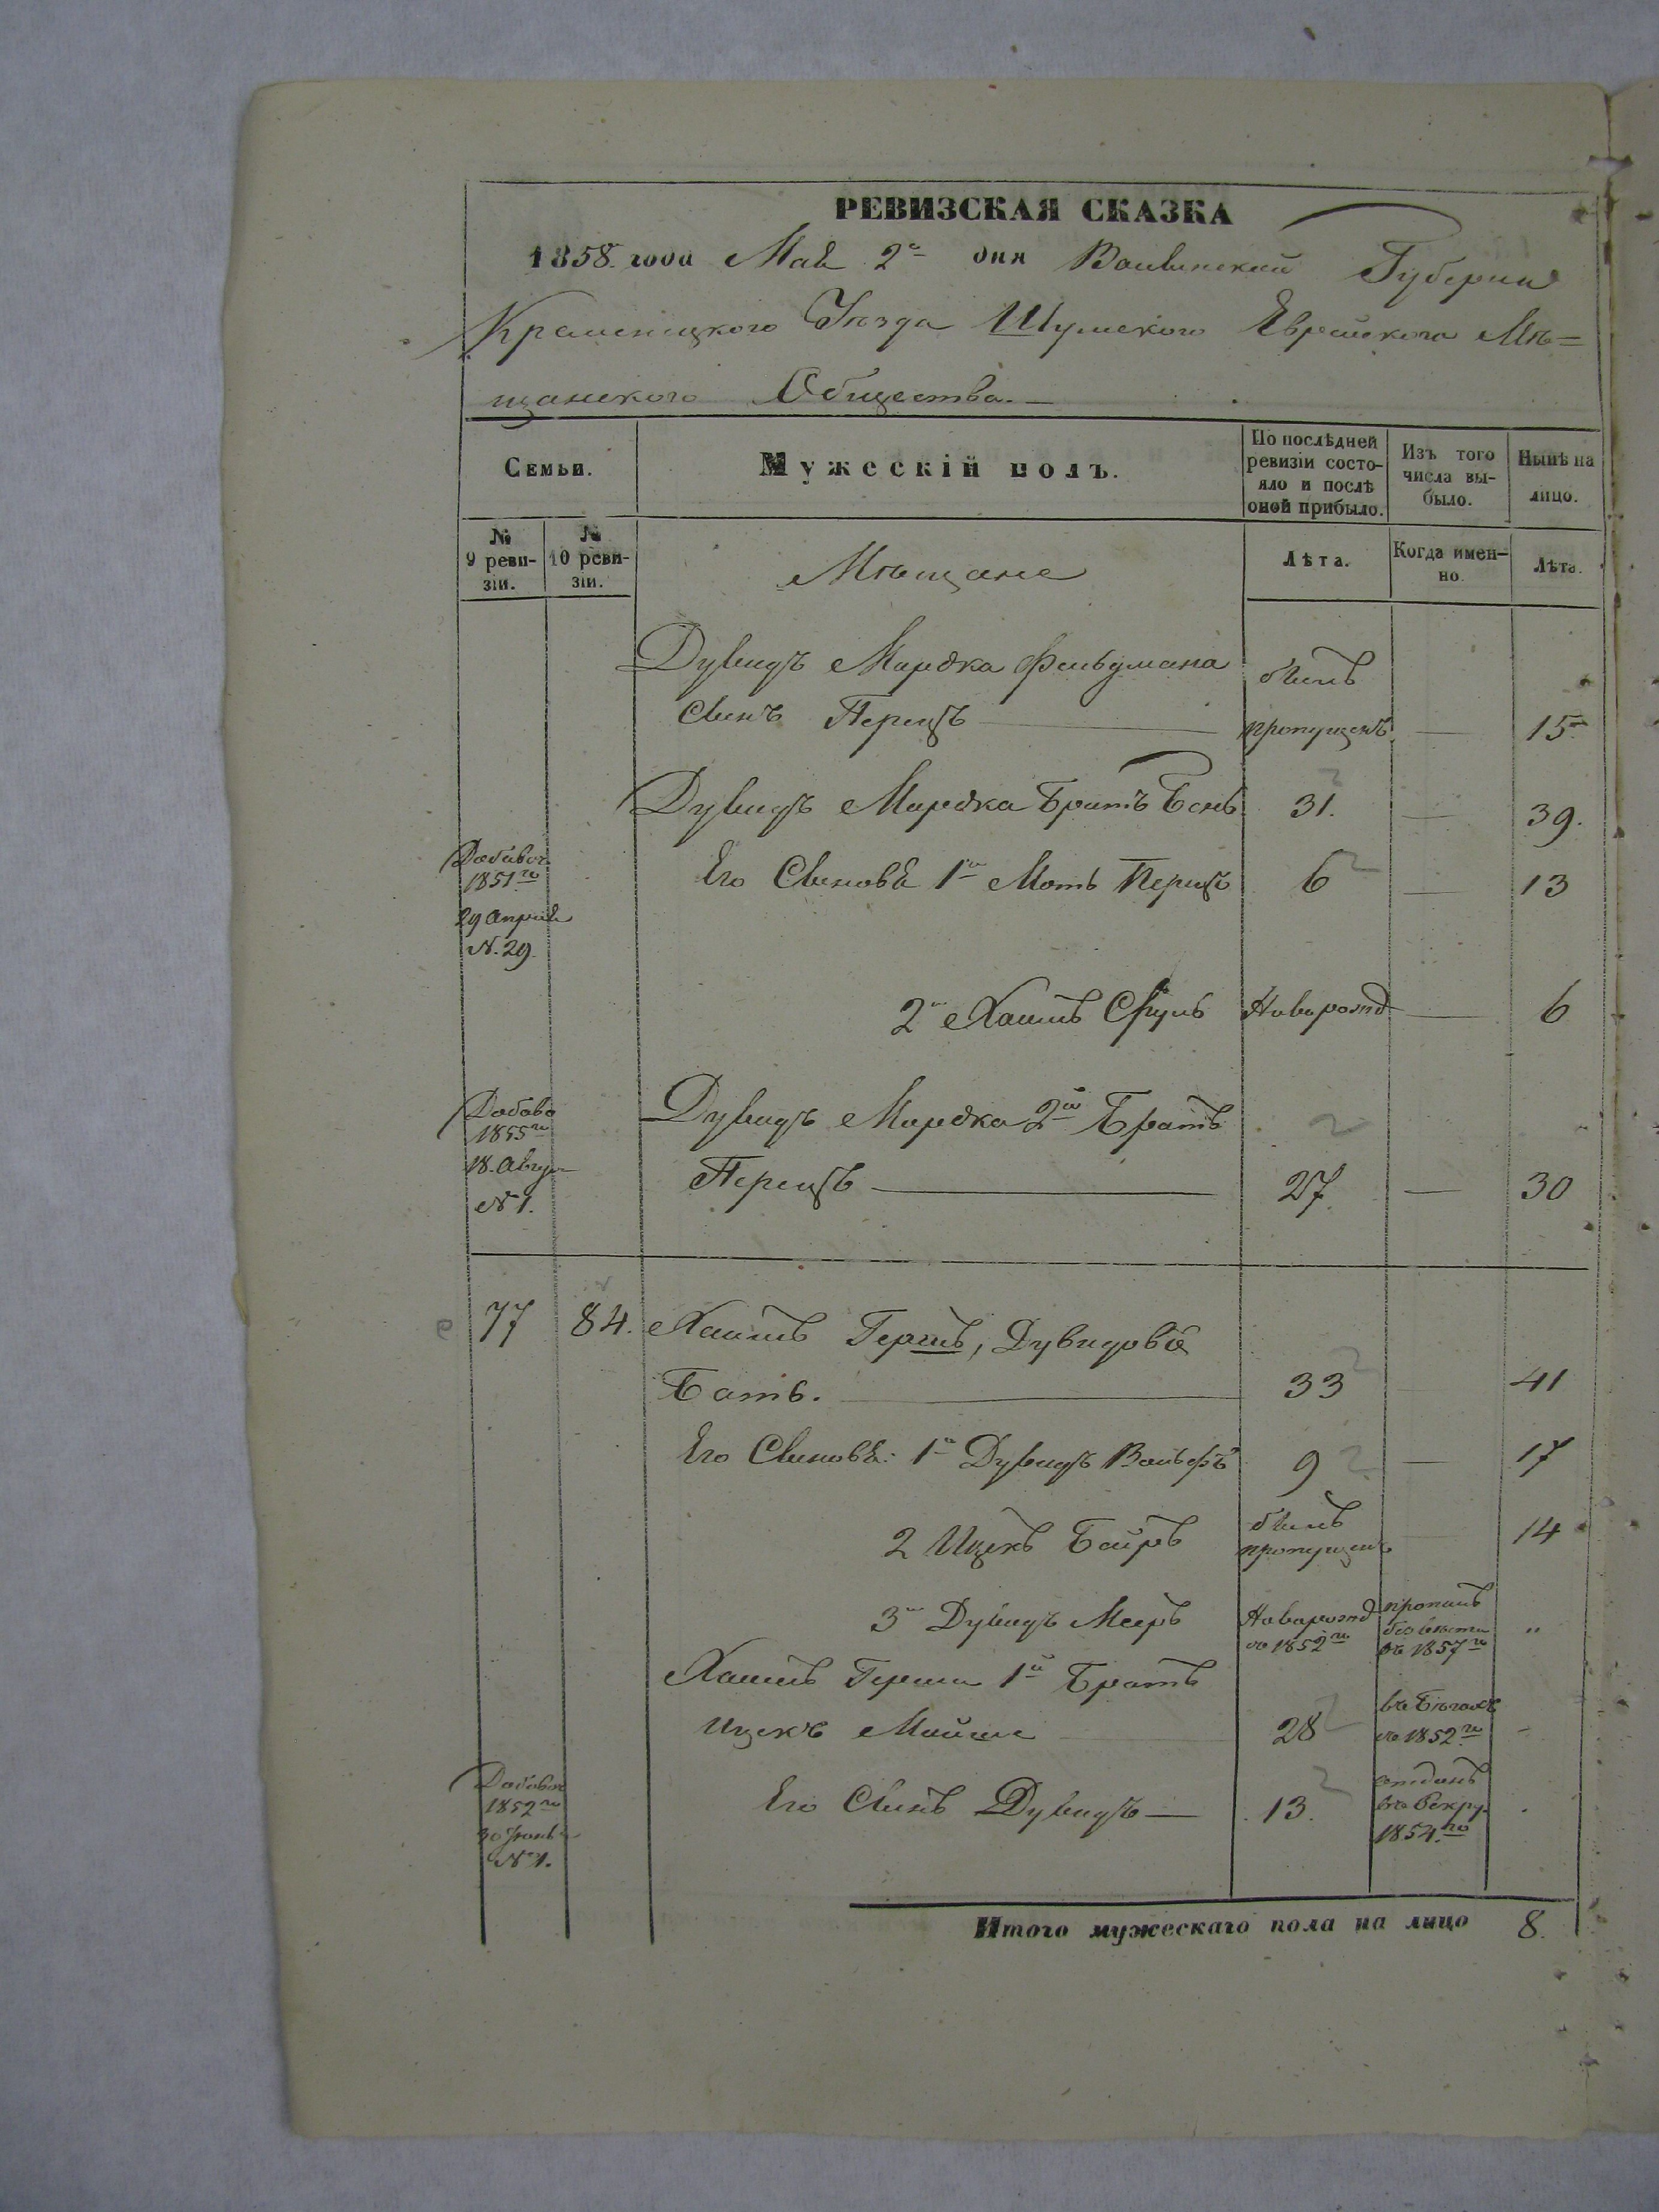 РЕВИЗСКАЯ СКАЗКА
1858 года Маія 2го дня Волынской Губерніи
Кременецкого Уезда Шумского Еврейского Мѣ=
щанского Общества.
Семьи.
Мужескій полъ.
По послѣдней ревизіи состо-
яло и послѣ оной прибыло.
Изъ того числа вы-
было.
Нынѣ на лицо.
№ 9 реви-
зіи.
№ 10 реви-
зіи.
Мѣщане
Лѣта.
Когда имен-
но.
Лѣта.
Дувидъ Мордка Фельдмана былъ
Сынъ Перецъ пропущенъ — 15
Дувидъ Мордка Братъ Бень 31. — 39.
Добавоч. 1851го 29 Апреля N. 29.
Его Сыновья 1й Моть Перецъ 6 — 13
2й Хаимъ Сруль Новорожд — 6
Добаво 1855го 18. Авгус N 1.
Дувидъ Мордка 2й Братъ
Перецъ 27. — 30
77 84. Хаимъ Гершъ, Дувидовъ
Батъ. 33 41
Его Сыновья: 1й Дувидъ Вольфъ 9 — 17
2 Ицекъ Беиръ былъ пропущенъ 14
3й Дувидъ Мееръ Новорожд въ 1852го пропалъ безвѣсти въ 1857го "
Хаимъ Герша 1й Братъ
Ицекъ Мойше 28 въ Бѣгахъ въ 1852го
Добавоч 1852го 30 Іюнь N 1.
Его Сынъ Дувидъ — 13. отданъ въ Рекру. 1854.го
Итого мужескаго пола на лицо 8.